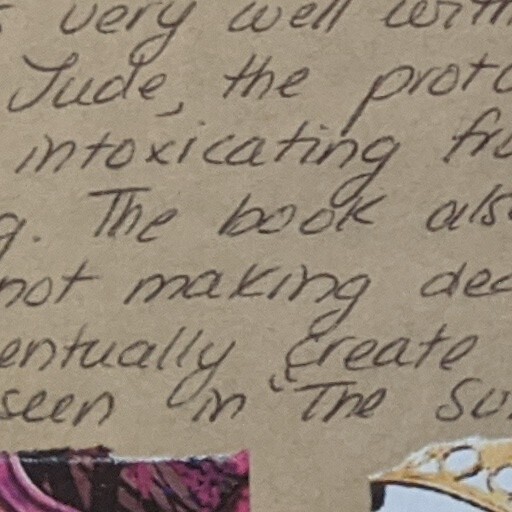 very well with
Jude, the proto
intoxicating fro
g. The book als
not making dec
entually create
seen in "The Su